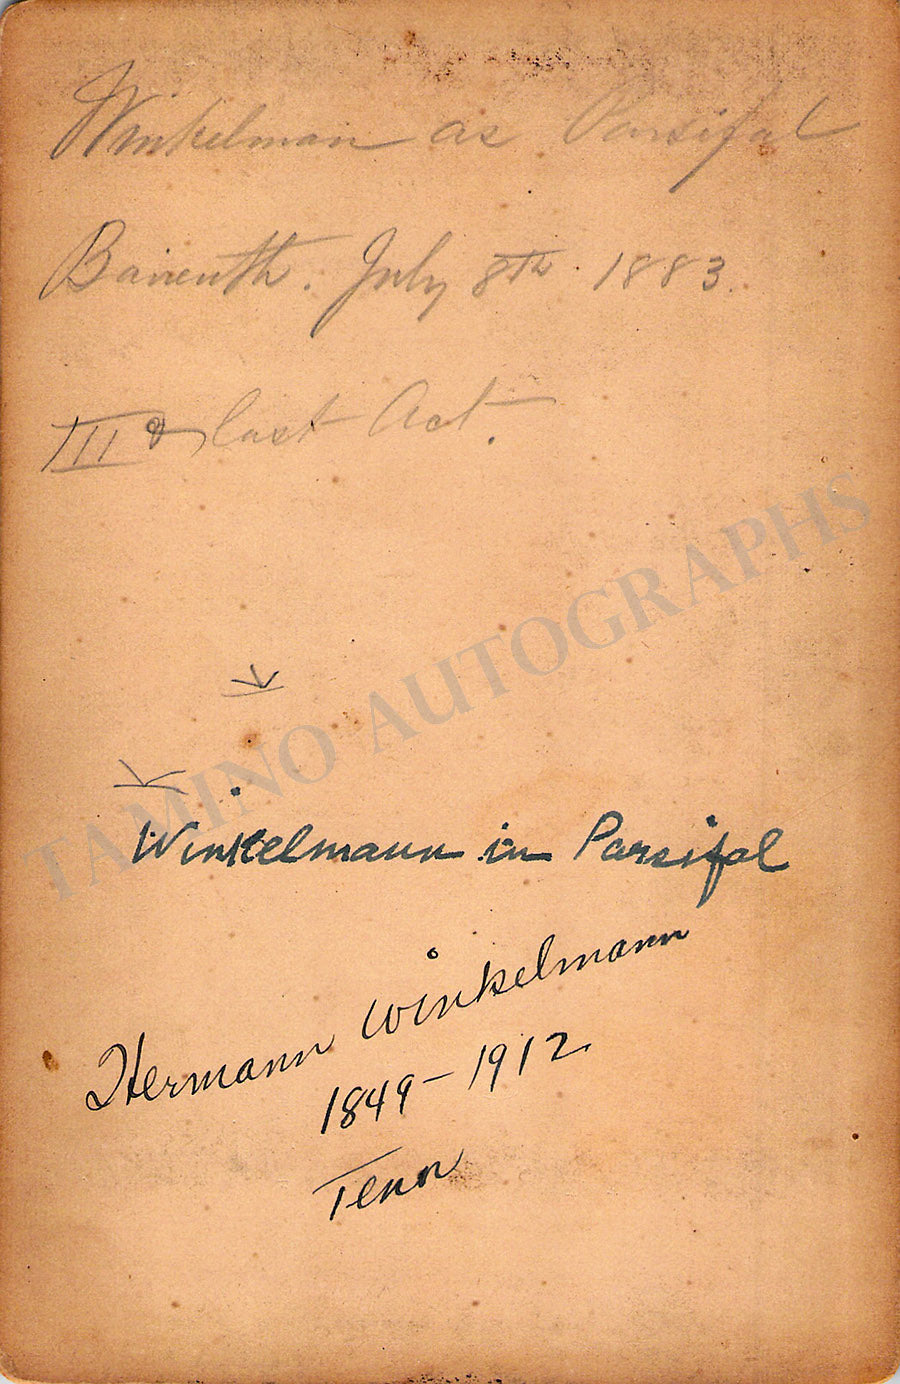 Winkelman as Parsifal
Baireuth. July 8th. 1883.
III & last Act.
TAMINO AUTOGRAPHS
Winkelmann in Parsifal
Hermann Winkelmann
1849-1912
Tenor